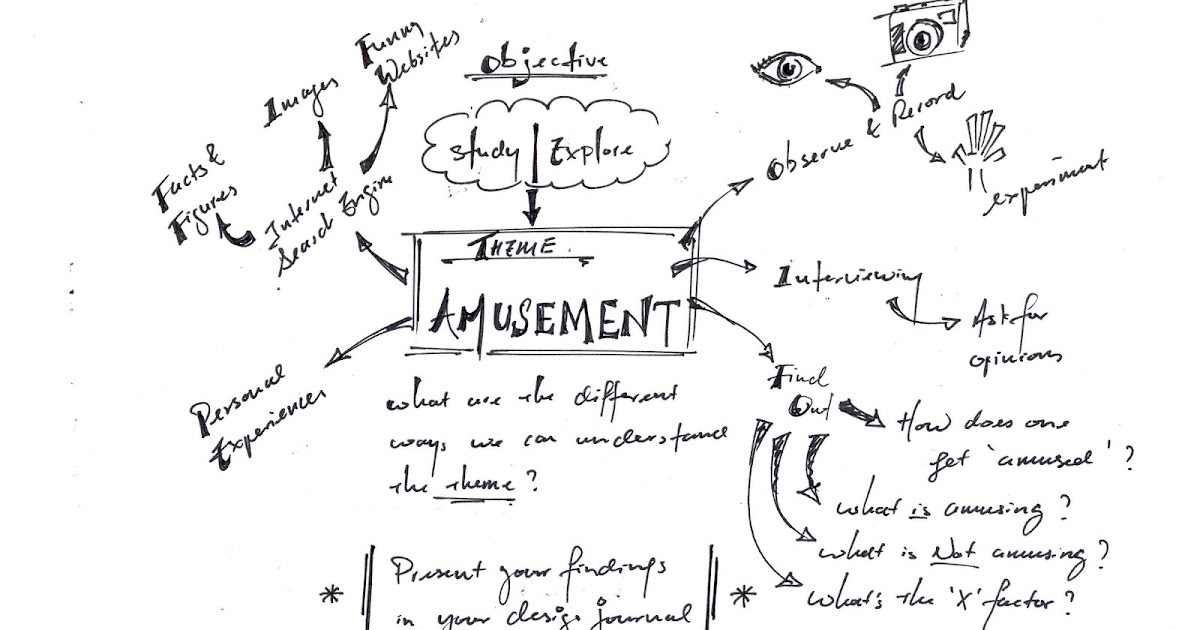 Objective
Study | Explore
THEME
AMUSEMENT
what are the different
ways we can understand
the theme?
Internet
Search Engine
Facts &
Figures
Images
Funny
Websites
Personal
Experiences
Observe & Record
experiment
Interviewing
Ask for
opinions
Find
Out
How does one
get 'amused'?
what is amusing?
what is Not amusing?
what's the 'X' factor?
* Present your findings *
in your design journal